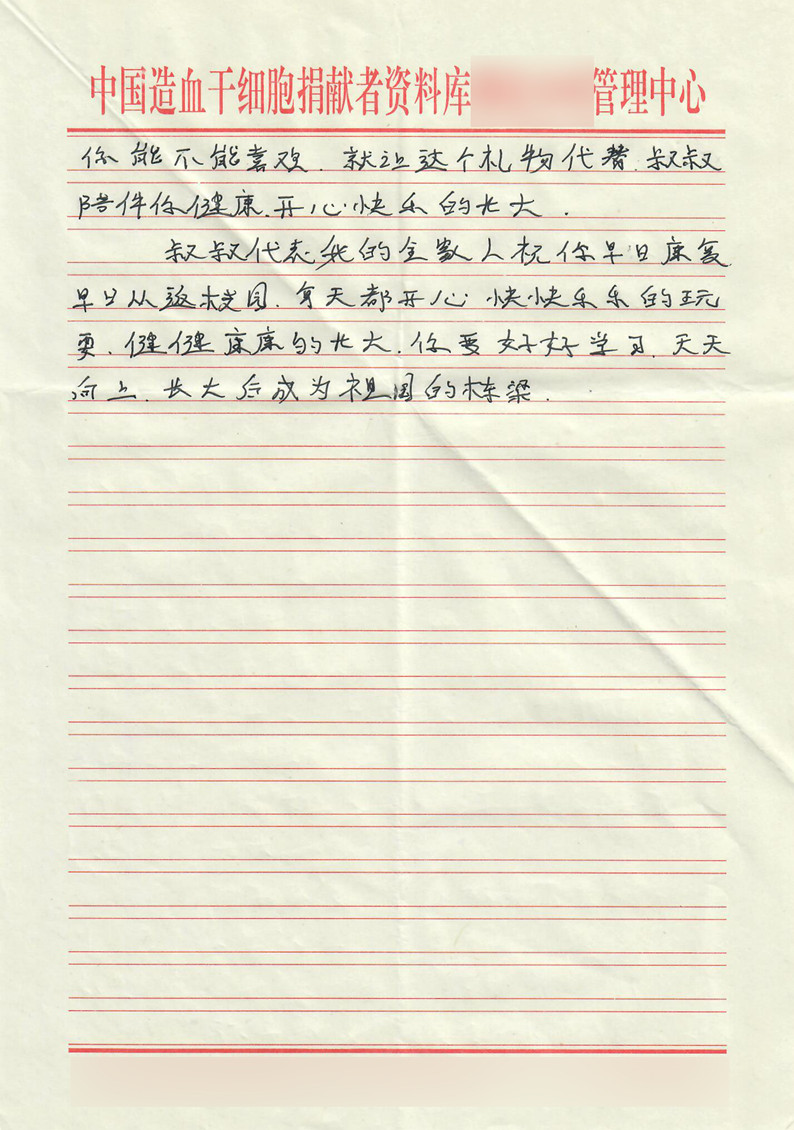 中国造血干细胞捐献者资料库 管理中心
你能不能喜欢.就让这个礼物代替.叔叔
陪伴你健康.开心快乐的长大.
叔叔代表我的全家人祝你早日康复
早日从返校园.每天都开心快快乐乐的玩
耍.健健康康的长大.你要好好学习.天天
向上.长大后成为祖国的栋梁.